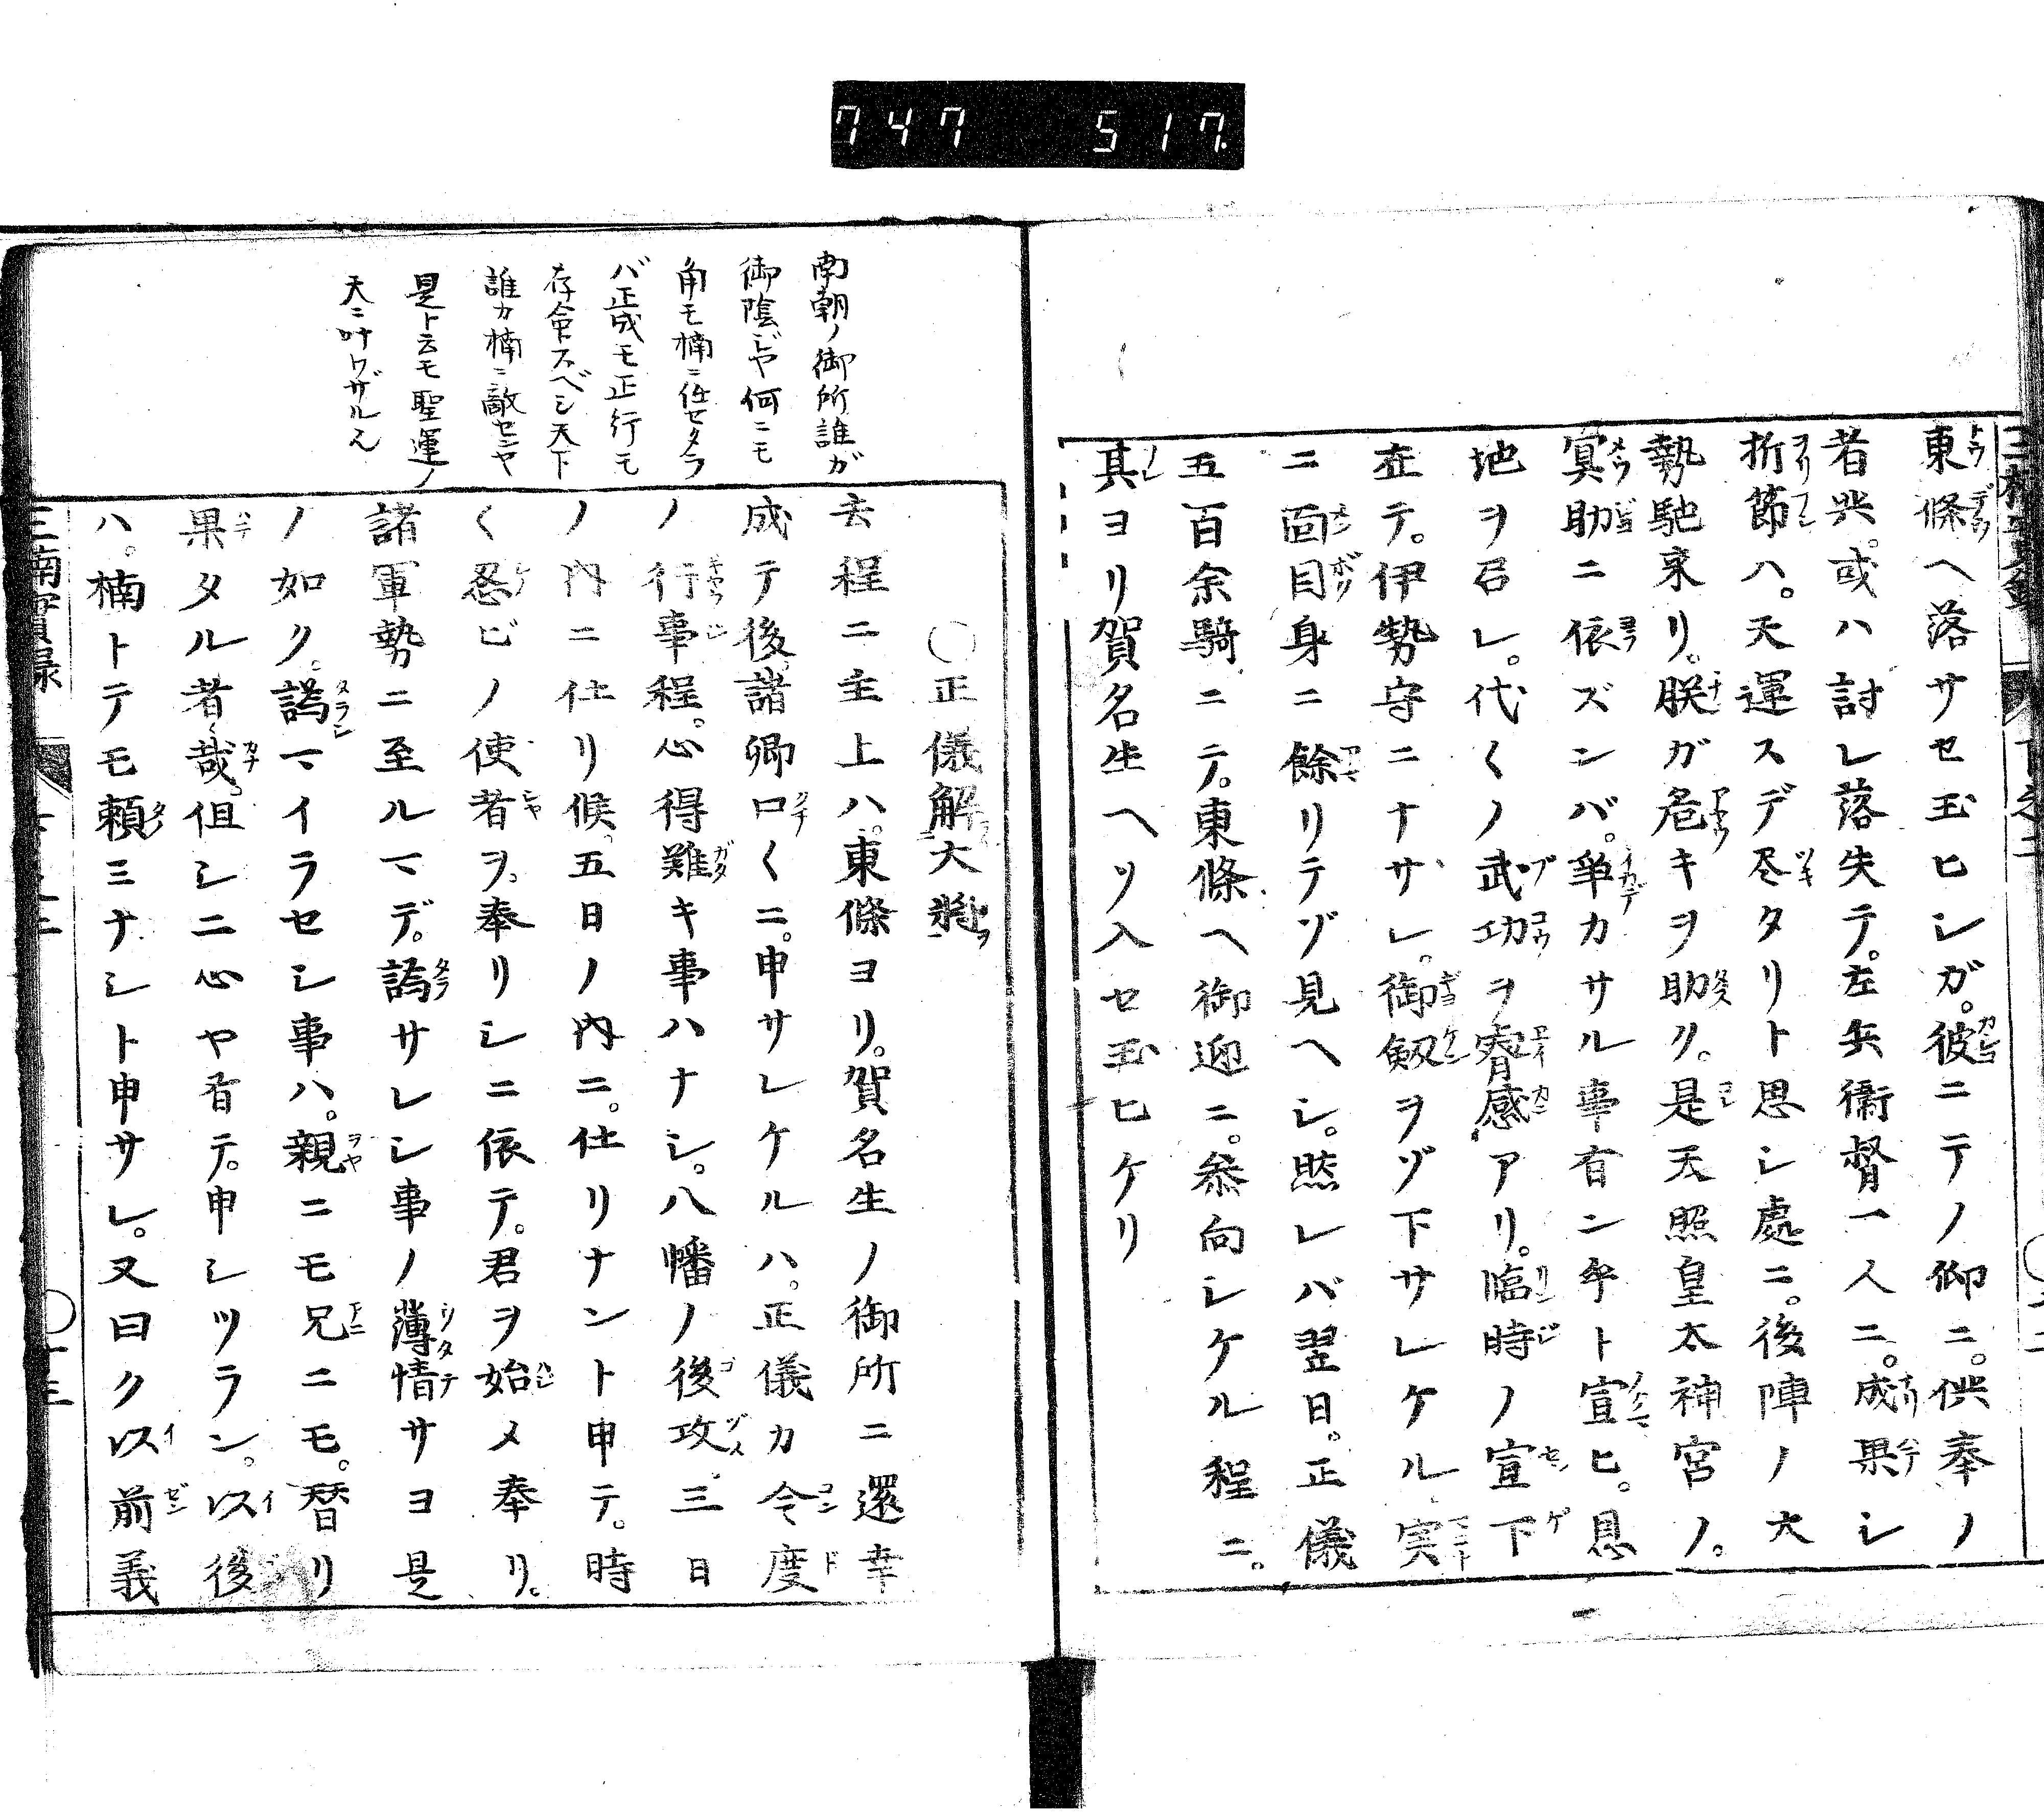 747 517
東條ヘ落サセ玉ヒシガ。彼ニテノ仰ニ。供奉ノ
者共。或ハ討レ落失テ。左兵衞督一人ニ。成果シ
折節ハ。天運スデ尽タリト思シ處ニ。後陣ノ大
勢馳来リ。朕ガ危キヲ助ク。是天照皇太神宮ノ。
冥助ニ依ズンバ。爭カサル事有ン乎ト宣ヒ。恩
地ヲ召レ。代〱ノ武功ヲ睿感アリ。臨時ノ宣下
在テ。伊勢守ニナサレ。御劔ヲゾ下サレケル。実
ニ面目身ニ餘リテゾ見ヘシ。然レバ翌日。正儀
五百余騎ニテ。東條ヘ御迎ニ。叅向シケル程ニ。
其ヨリ賀名生ヘツ入セ玉ヒケリ
南朝ノ御所誰ガ
御陰ジヤ何ニモ
角モ楠ニ任セタラ
バ正成モ正行モ
存命スベシ天下
誰カ楠ニ敵センヤ
是ト云モ聖運ノ
天ニ叶ワザル
〇正儀解大將
去程ニ主上ハ。東條ヨリ。賀名生ノ御所ニ還幸
成テ後。諸卿口〱ニ。申サレケルハ。正儀カ今度
ノ行事程。心得難キ事ハナシ。八幡ノ後攻。三日
ノ内ニ仕リ候。五日ノ内ニ。仕リナント申テ。時
〱忍ビノ使者ヲ。奉リシニ依テ。君ヲ始メ奉リ。
諸軍勢ニ至ルマデ。譌サレシ事ノ薄情サヨ是
ノ如ク。譌マイラセシ事ハ。親ニモ兄ニモ。替リ
果タル者哉。但シ二心ヤ有テ。申シツラン。以後
ハ。楠トテモ頼ミナシト申サレ。又曰ク以前義
三楠實録